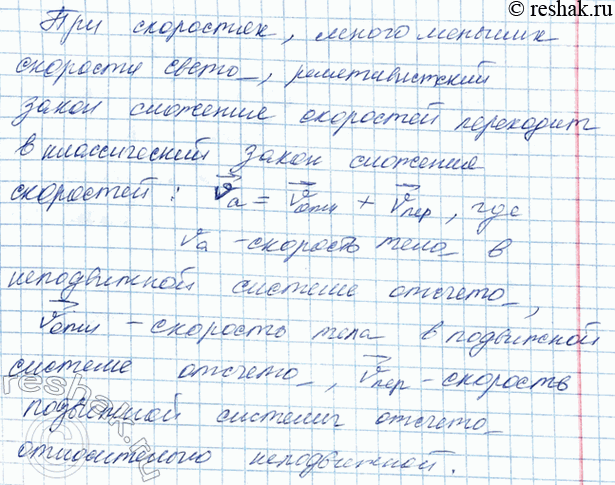 © reshak.ru
При скоростях, много меньших
скорости света, релятивистский
закон сложения скоростей переходит
в классический закон сложения
скоростей: v⃗а = v⃗отн + v⃗пер, где
vа - скорость тела в
неподвижной системе отсчета,
v⃗отн - скорость тела в подвижной
системе отсчета, v⃗пер - скорость
подвижной системы отсчета
относительно неподвижной.
reshak.ru